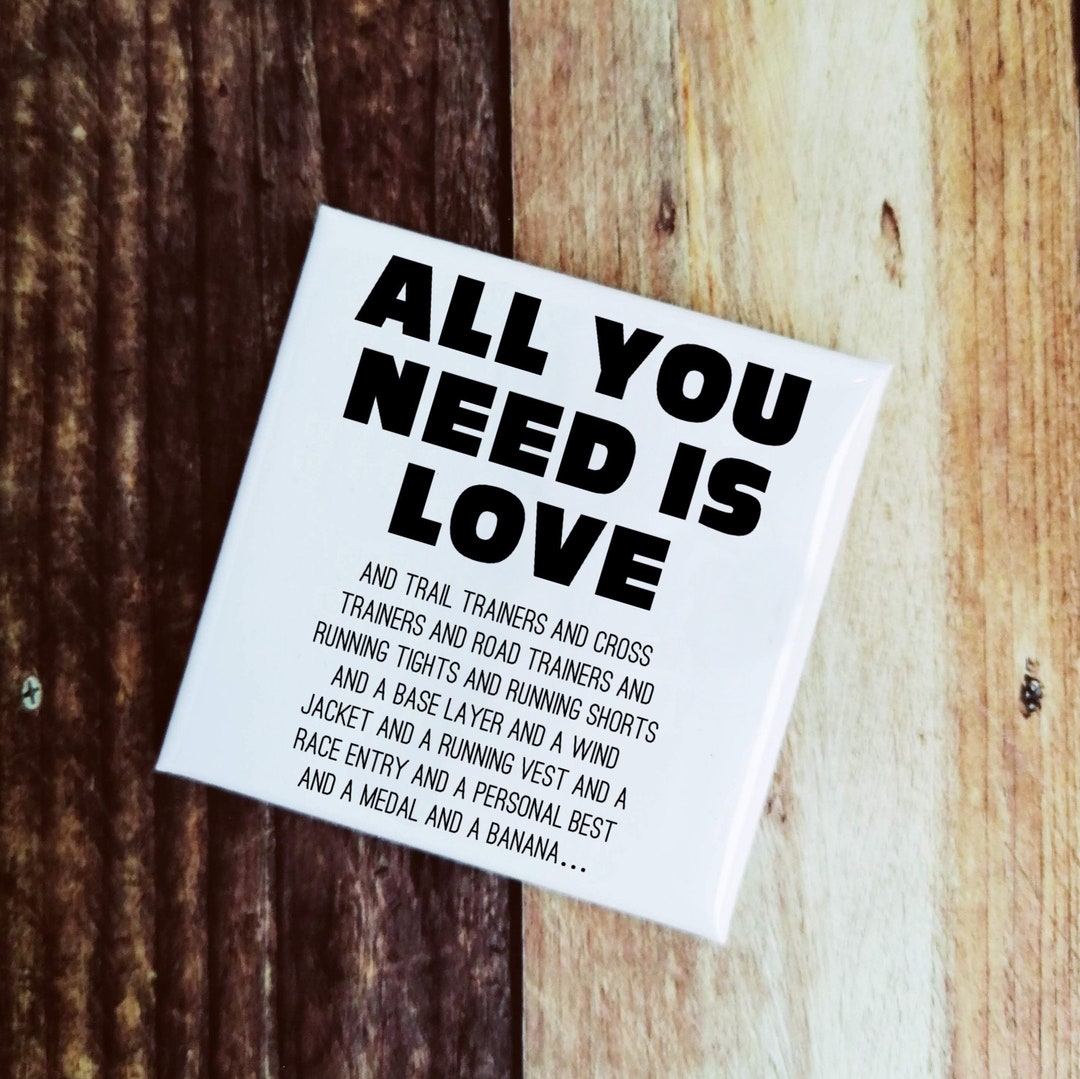 ALL YOU
NEED IS
LOVE
AND TRAIL TRAINERS AND CROSS
TRAINERS AND ROAD TRAINERS AND
RUNNING TIGHTS AND RUNNING SHORTS
AND A BASE LAYER AND A WIND
JACKET AND A RUNNING VEST AND A
RACE ENTRY AND A PERSONAL BEST
AND A MEDAL AND A BANANA...